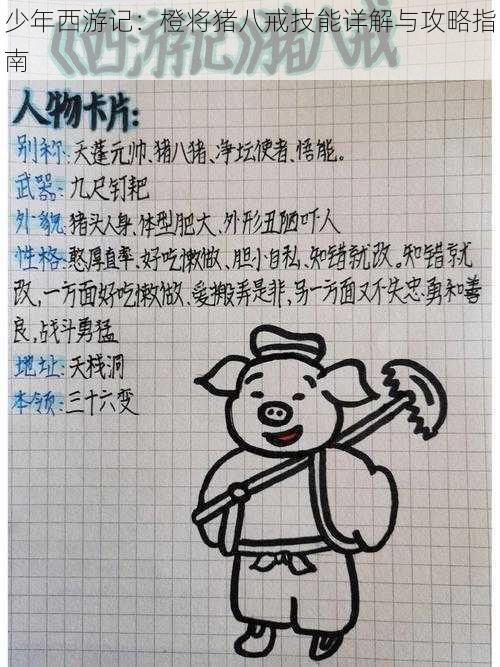 少年西游记：橙将猪八戒技能详解与攻略指
南
《西游记》猪八戒
人物卡片：
别称：天蓬元帅、猪八猪、净坛使者、悟能。
武器：九尺钉耙
外貌：猪头人身、体型肥大、外形丑陋吓人
性格：憨厚直率、好吃懒做、胆小自私、知错就改。知错就
改，一方面好吃懒做、爱搬弄是非，另一方面又不失忠勇和善
良，战斗勇猛
地址：天栈洞
本领：三十六变